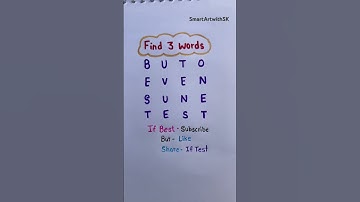 SmartArtwithSK
Find 3 Words
B U T O
E V E N
S U N E
T E S T
If Best - Subscribe
But - Like
Share - If Test